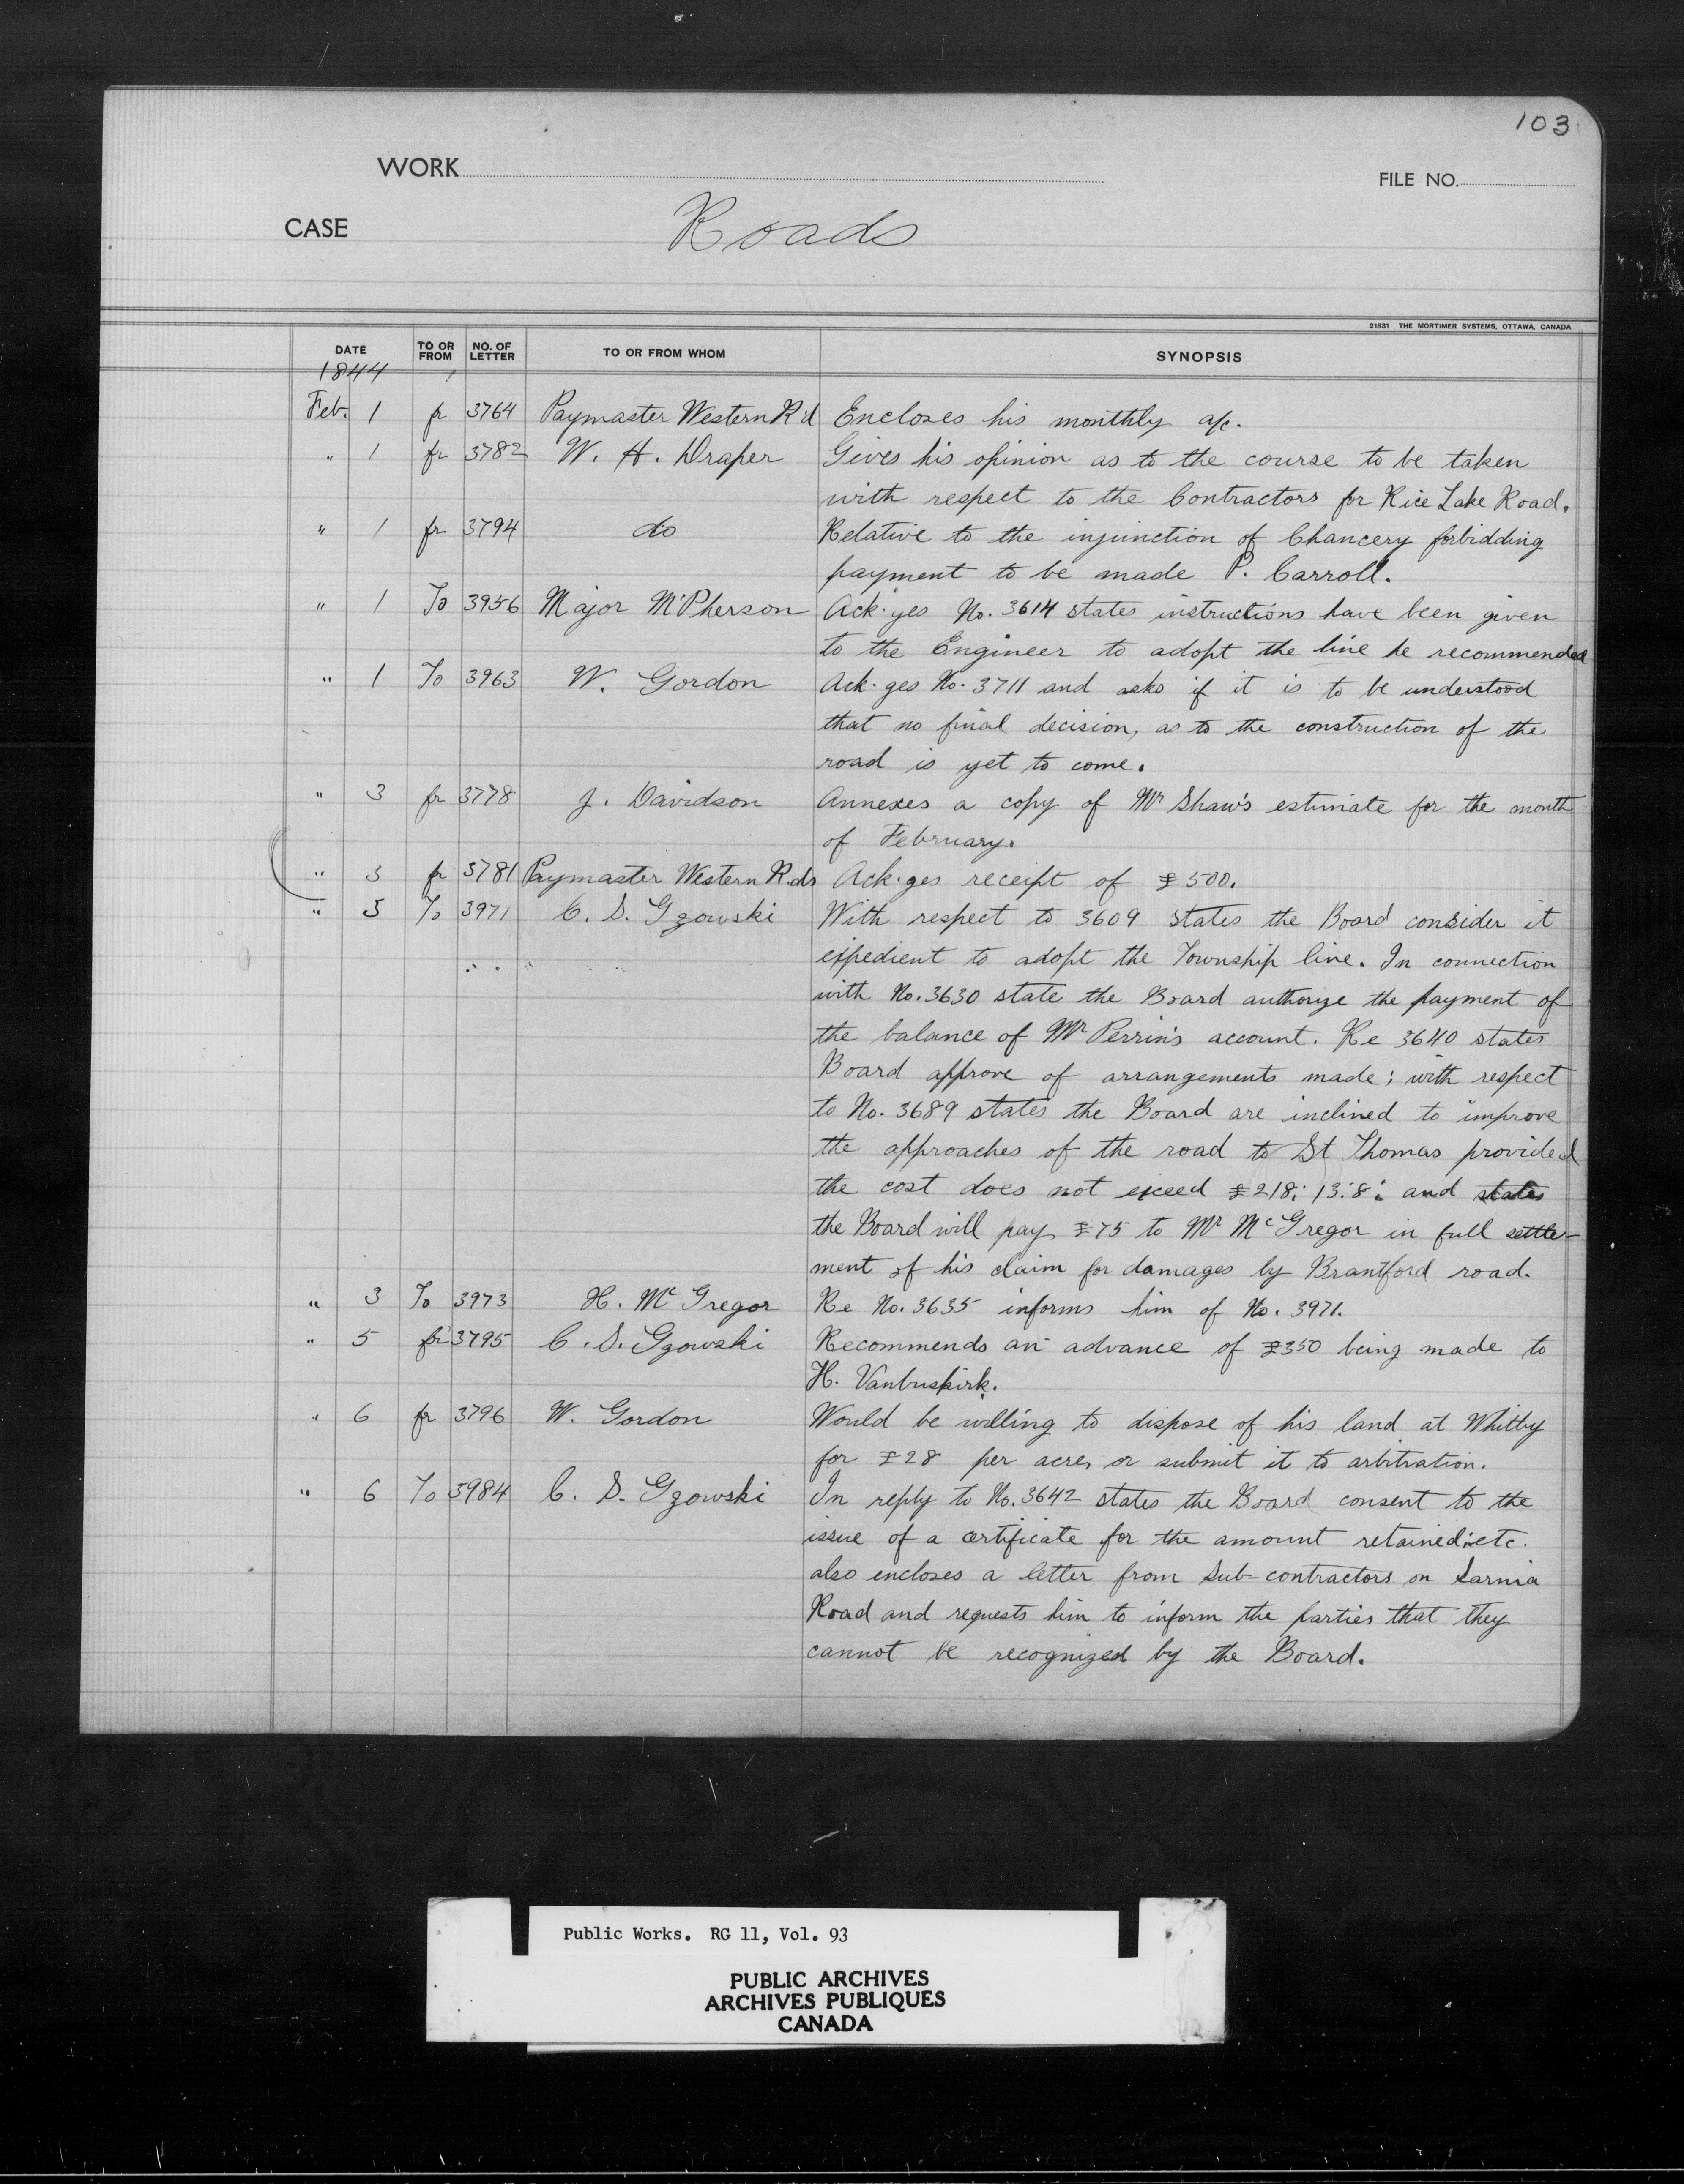 103
WORK
FILE NO.
CASE
Roads
21831 THE MORTIMER SYSTEMS, OTTAWA, CANADA
DATE TO OR FROM NO. OF LETTER TO OR FROM WHOM SYNOPSIS
1844
Feb. 1 fr 3764 Paymaster Western R'd Encloses his monthly a/c.
" 1 fr 3782 W. H. Draper Gives his opinion as to the course to be taken
with respect to the Contractors for Rice Lake Road.
" 1 fr 3794 do Relative to the injunction of Chancery forbidding
payment to be made P. Carroll.
" 1 To 3956 Major McPherson Ack.yes No. 3614 states instructions have been given
to the Engineer to adopt the line he recommended
" 1 To 3963 W. Gordon Ack.ges No. 3711 and asks if it is to be understood
that no final decision, as to the construction of the
road is yet to come.
" 3 fr 3778 J. Davidson Annexes a copy of Mr Shaw's estimate for the month
of February.
" 3 fr 3781 Paymaster Western R.ds Ack.ges receipt of £500.
" 3 To 3971 C. S. Gzowski With respect to 3609 states the Board consider it
expedient to adopt the Township line. In connection
with No. 3630 state the Board authorize the payment of
the balance of Mr Perrin's account. Re 3640 states
Board approve of arrangements made; with respect
to No. 3689 states the Board are inclined to improve
the approaches of the road to St Thomas provided
the cost does not exceed £218: 13: 8: and states
the Board will pay £75 to Mr McGregor in full settle-
ment of his claim for damages by Brantford road.
" 3 To 3973 H. McGregor Re No. 3635 informs him of No. 3971.
" 5 fr 3795 C. S. Gzowski Recommends an advance of £350 being made to
H. Vanbuskirk.
" 6 fr 3796 W. Gordon Would be willing to dispose of his land at Whitby
for £28 per acre, or submit it to arbitration.
" 6 To 3984 C. S. Gzowski In reply to No. 3642 states the Board consent to the
issue of a certificate for the amount retained: etc.
also encloses a letter from Sub-contractors on Sarnia
Road and requests him to inform the parties that they
cannot be recognized by the Board.
Public Works. RG 11, Vol. 93
PUBLIC ARCHIVES
ARCHIVES PUBLIQUES
CANADA